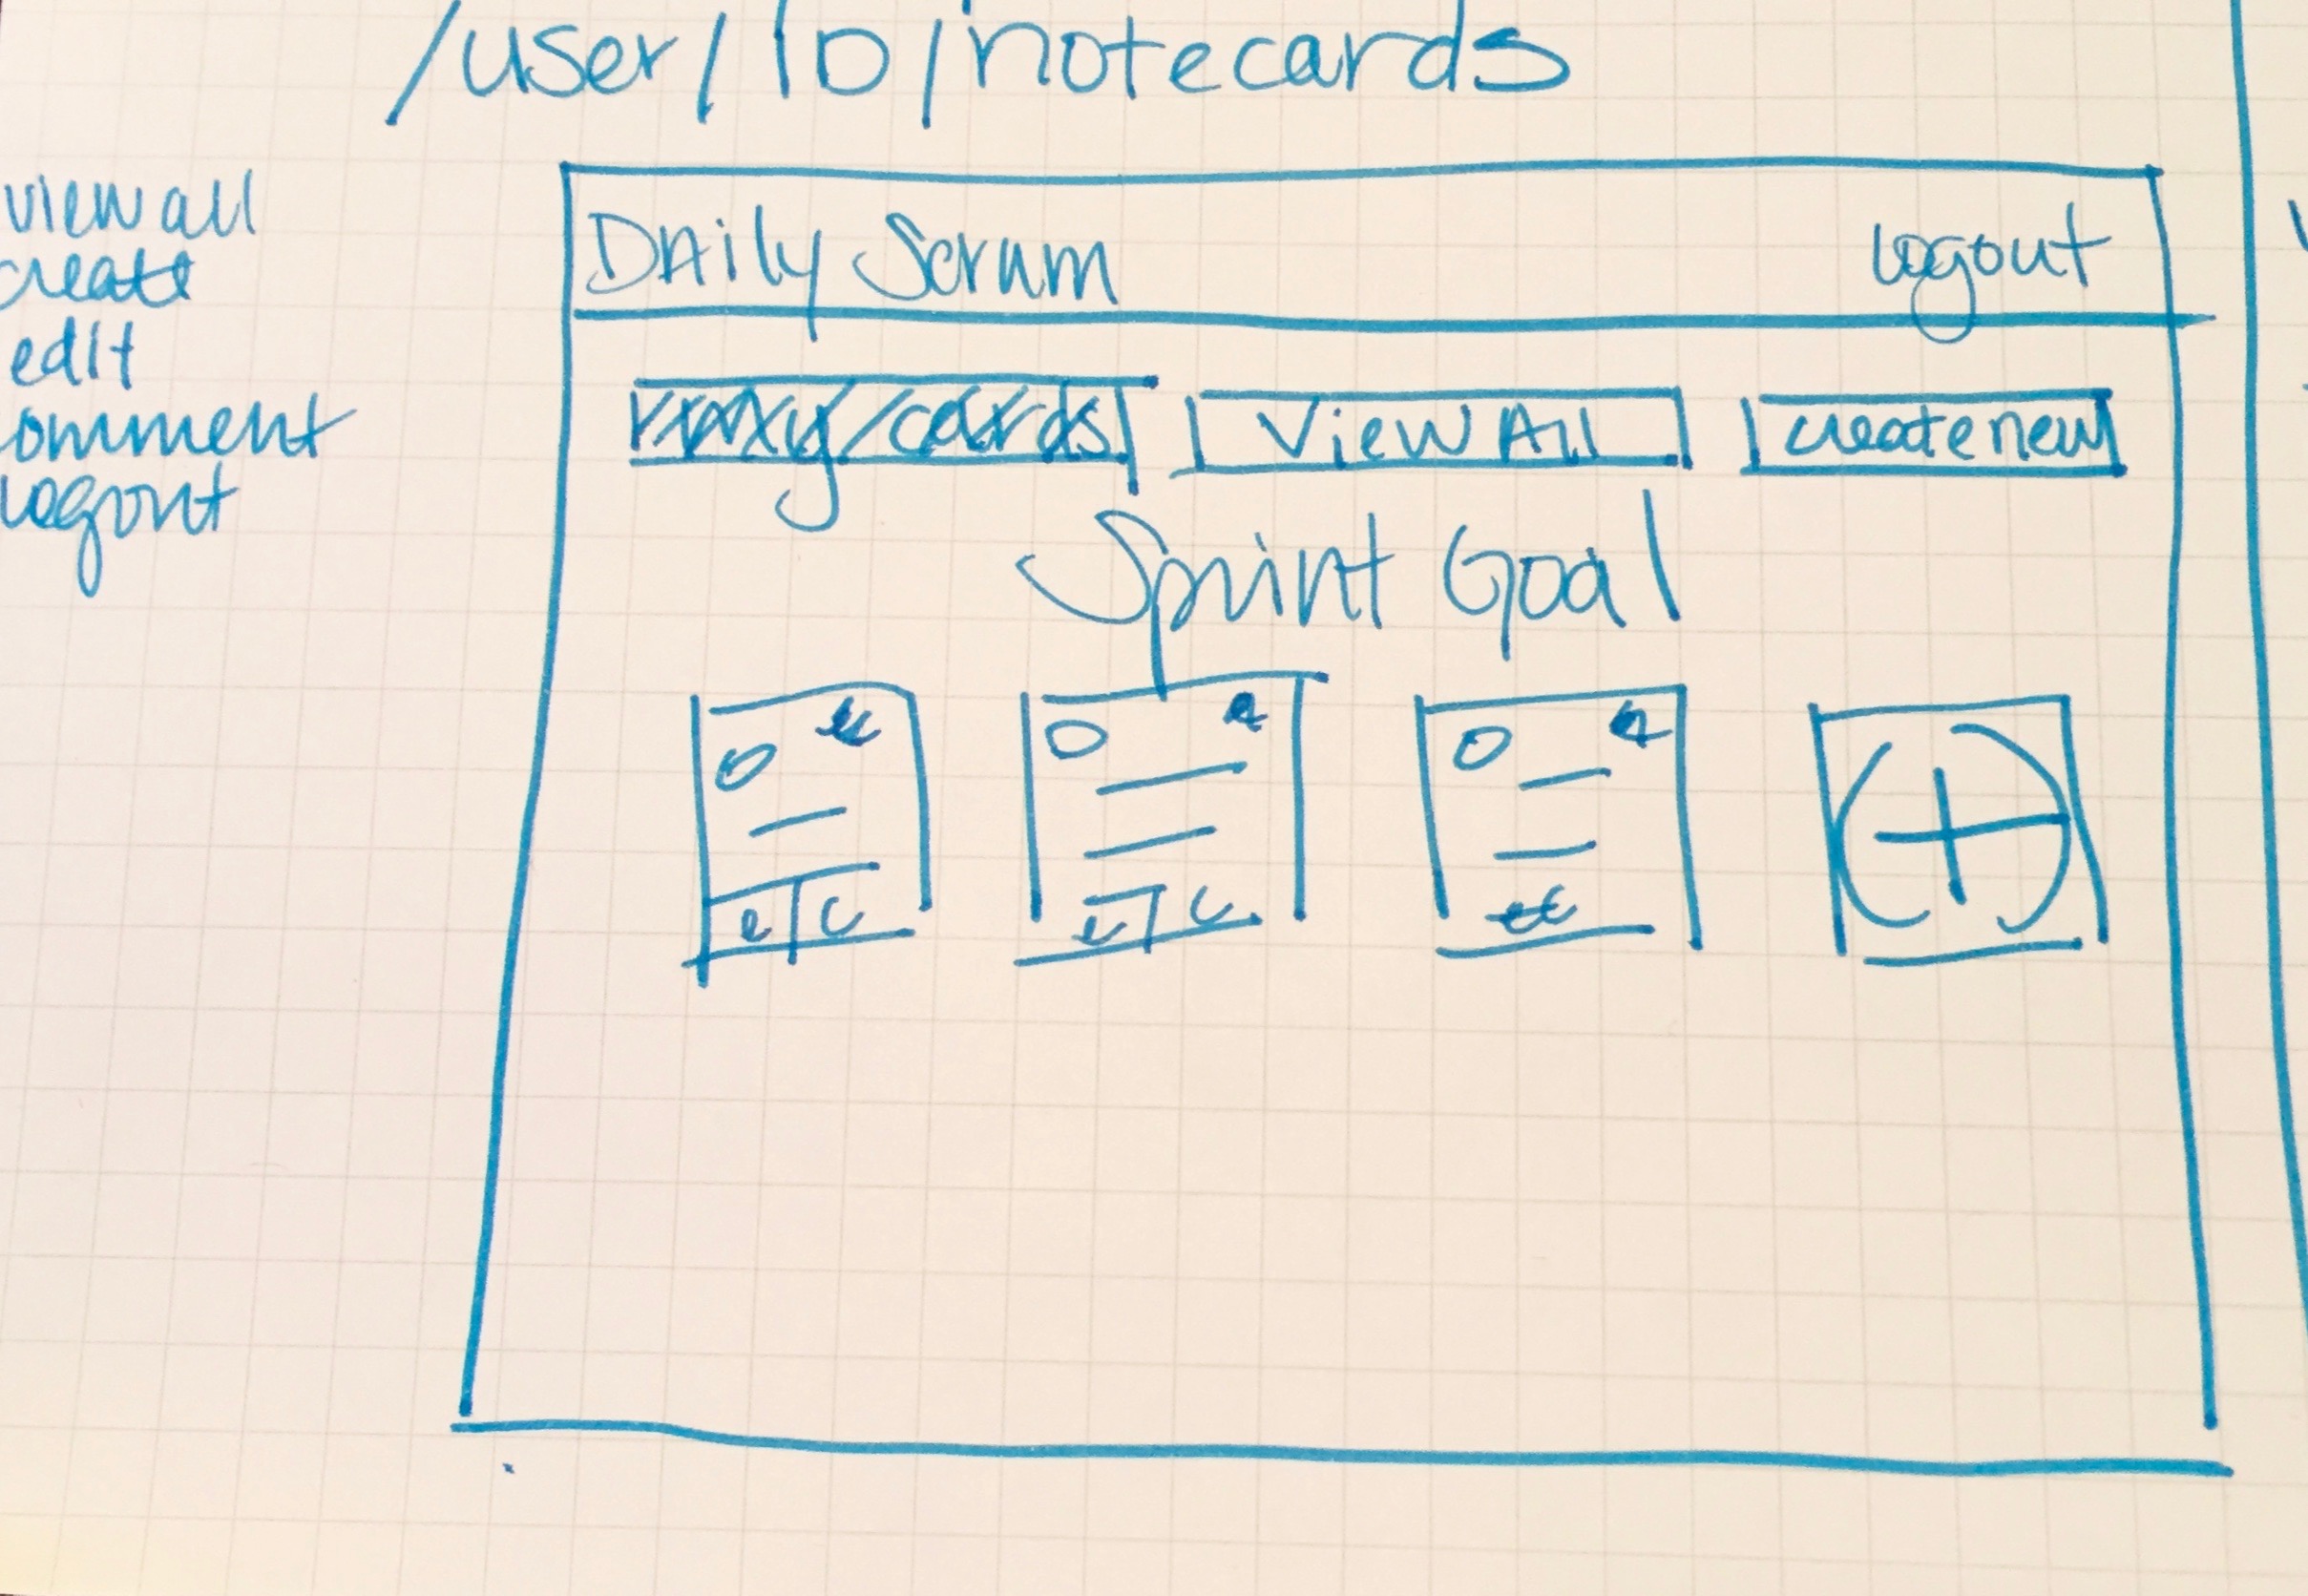 /user/ID/notecards
view all
create
edit
omment
logout
Daily Scrum logout
my cards View All create new
Sprint Goal
e c
e c